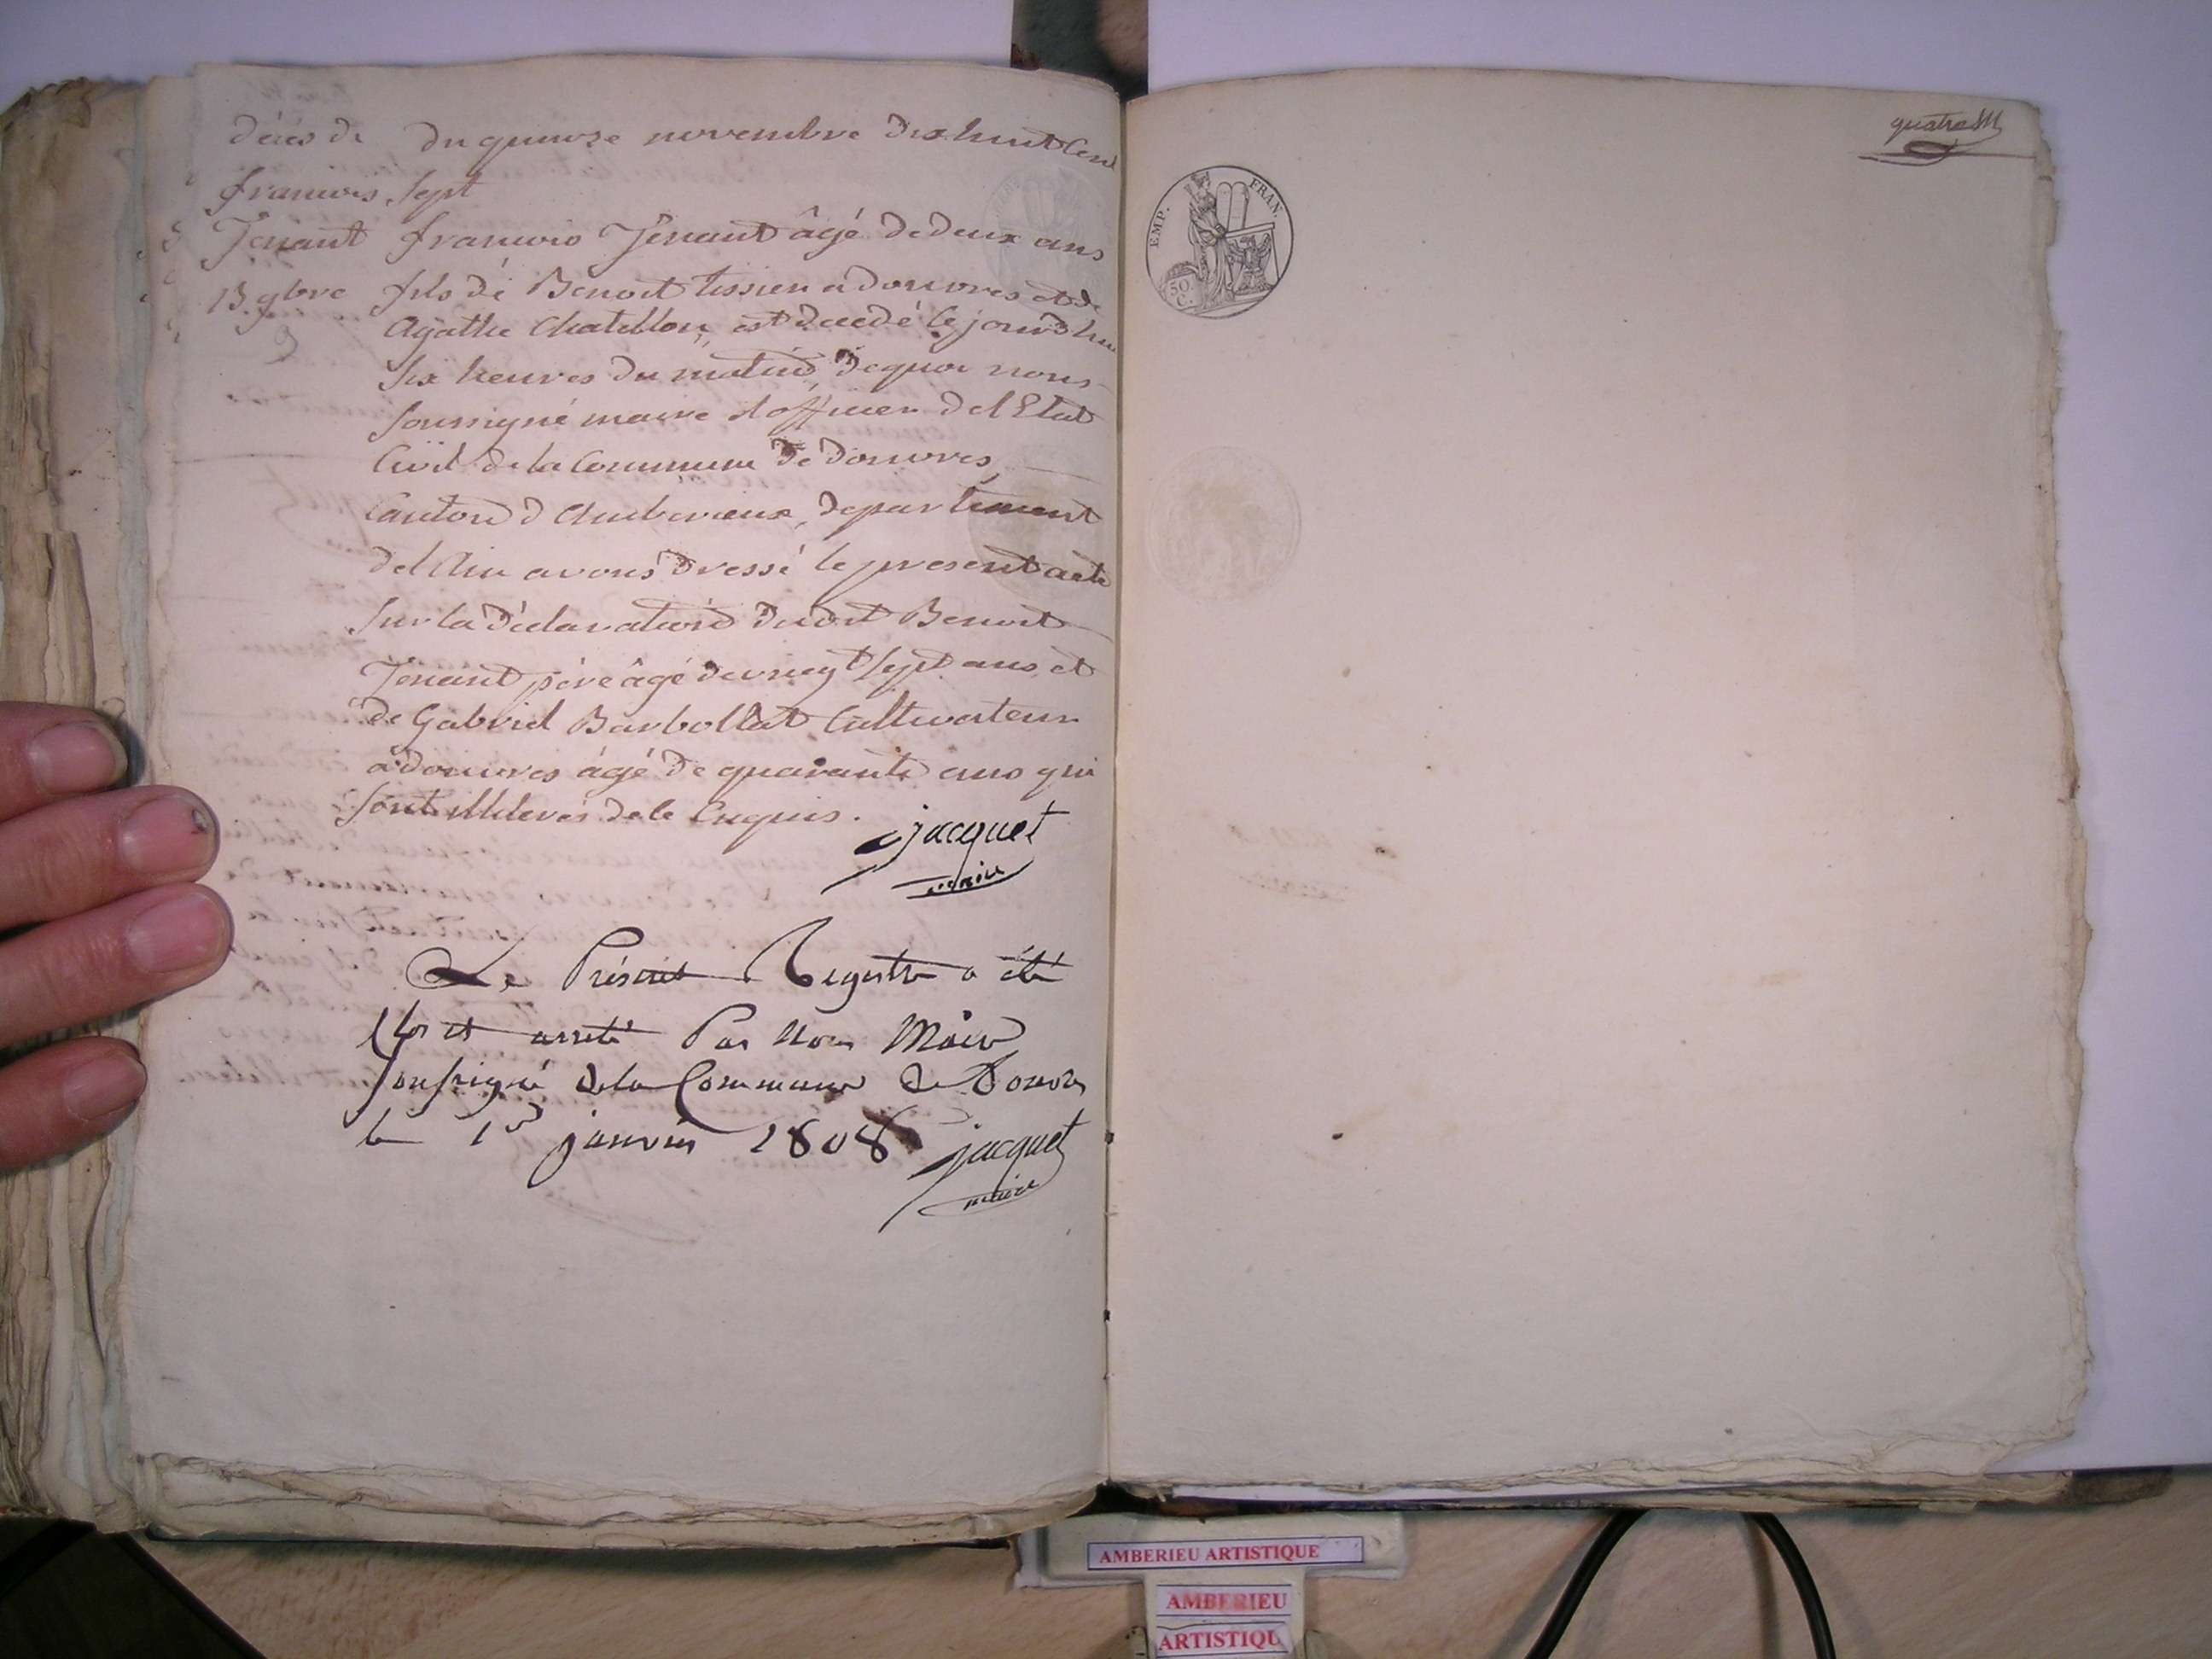 décès de
francois
Tenant
15 9bre
du quinze novembre dix huit Cent
sept
francois Tenant âgé de deux ans
fils de Benoit tissier a douvres et de
Agathe Chatillon, est decedé cejourdhui
six heures du matin, dequoi nous
soussigné maire et officier del Etat
Civil de la Commune de Douvres,
Canton d Amberieux, departement
del Ain avons dressé le present acte
sur la déclaration dudit Benoit
Tenant père âgé de vingt sept ans, et
de Gabriel Barbollat Cultivateur
a douvres âgé de quarante ans qui
sont illiterés de ce Enquis.
jacquet
maire
Le Présent Registre a été
Clos et arreté Par Nous Maire
soussigné de la Commune de Douvres
le 1er janvier 1808
jacquet
maire
EMP. FRAN.
50
C.
AMBERIEU ARTISTIQUE
AMBERIEU
ARTISTIQU